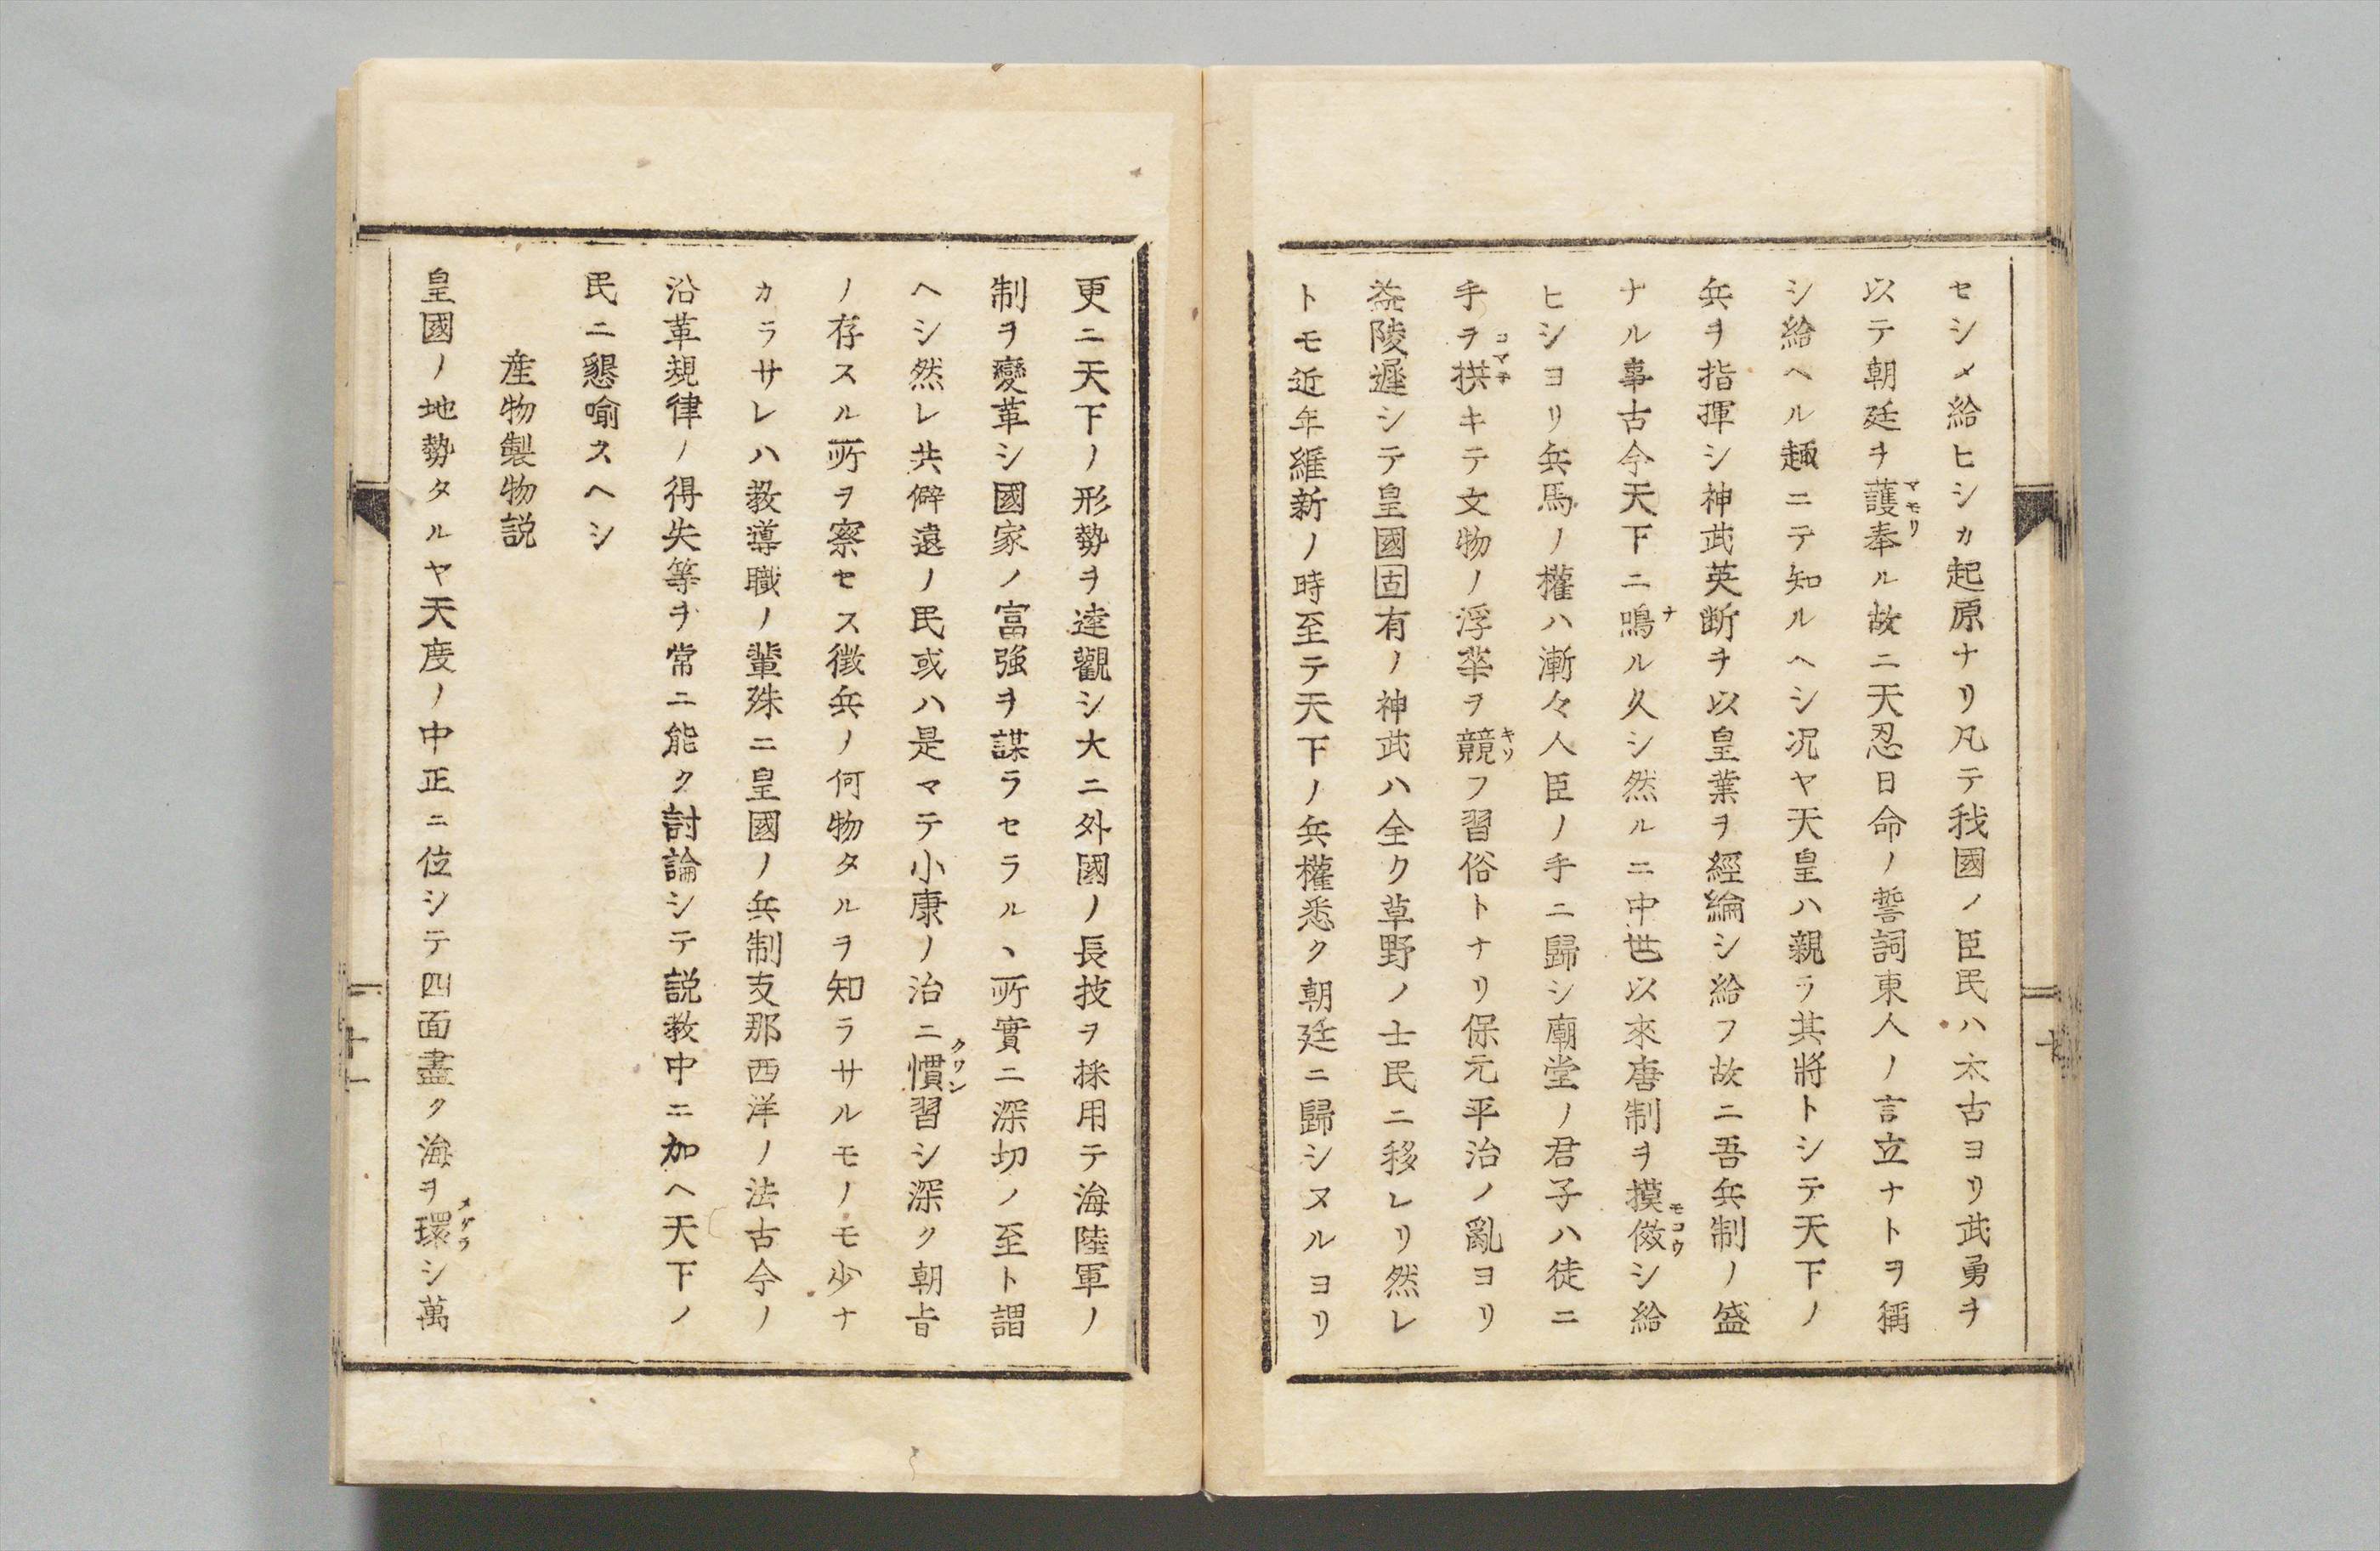 セシメ給ヒシカ起原ナリ凡テ我國ノ臣民ハ太古ヨリ武勇ヲ
以テ朝廷ヲ護奉ル故ニ天忍日命ノ誓詞東人ノ言立ナトヲ稱
シ給ヘル趣ニテ知ルヘシ况ヤ天皇ハ親ラ其將トシテ天下ノ
兵ヲ指揮シ神武英断ヲ以皇業ヲ經綸シ給フ故ニ吾兵制ノ盛
ナル事古今天下ニ鳴ル久シ然ルニ中世以來唐制ヲ摸倣シ給
ヒシヨリ兵馬ノ權ハ漸々人臣ノ手ニ歸シ廟堂ノ君子ハ徒ニ
手ヲ拱キテ文物ノ浮華ヲ競フ習俗トナリ保元平治ノ亂ヨリ
益陵遲シテ皇國固有ノ神武ハ全ク草野ノ士民ニ移レリ然レ
トモ近年維新ノ時至テ天下ノ兵權悉ク朝廷ニ歸シヌルヨリ
更ニ天下ノ形勢ヲ達觀シ大ニ外國ノ長技ヲ採用テ海陸軍ノ
制ヲ變革シ國家ノ富強ヲ謀ラセラルヽ所實ニ深切ノ至ト謂
ヘシ然レ共僻遠ノ民或ハ是マテ小康ノ治ニ慣習シ深ク朝旨
ノ存スル所ヲ察セス徴兵ノ何物タルヲ知ラサルモノモ少ナ
カラサレハ教導職ノ輩殊ニ皇國ノ兵制支那西洋ノ法古今ノ
沿革規律ノ得失等ヲ常ニ能ク討論シテ説教中ニ加ヘ天下ノ
民ニ懇喻スヘシ
産物製物説
皇國ノ地勢タルヤ天度ノ中正ニ位シテ四面盡ク海ヲ環シ萬